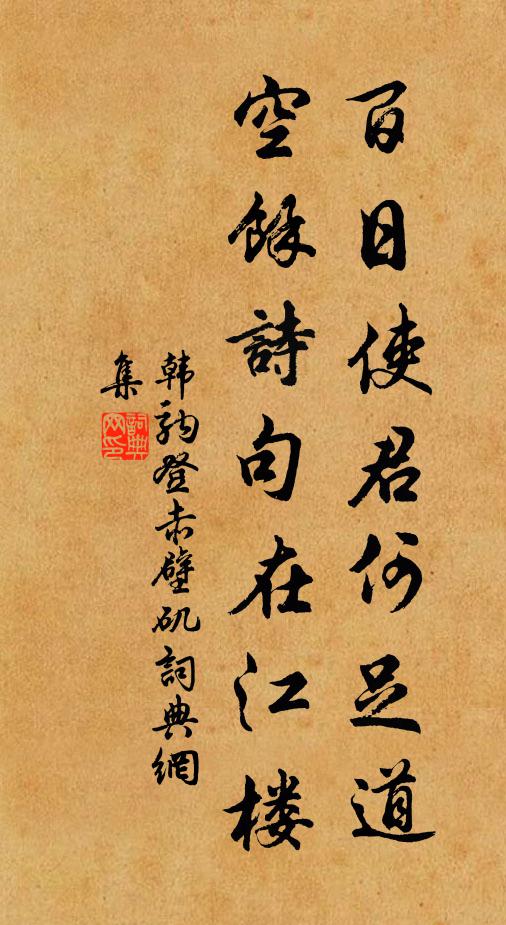 百日使君何足道
空餘詩句在江楼
韩駒登赤壁矶詞典網
集
詞典网印